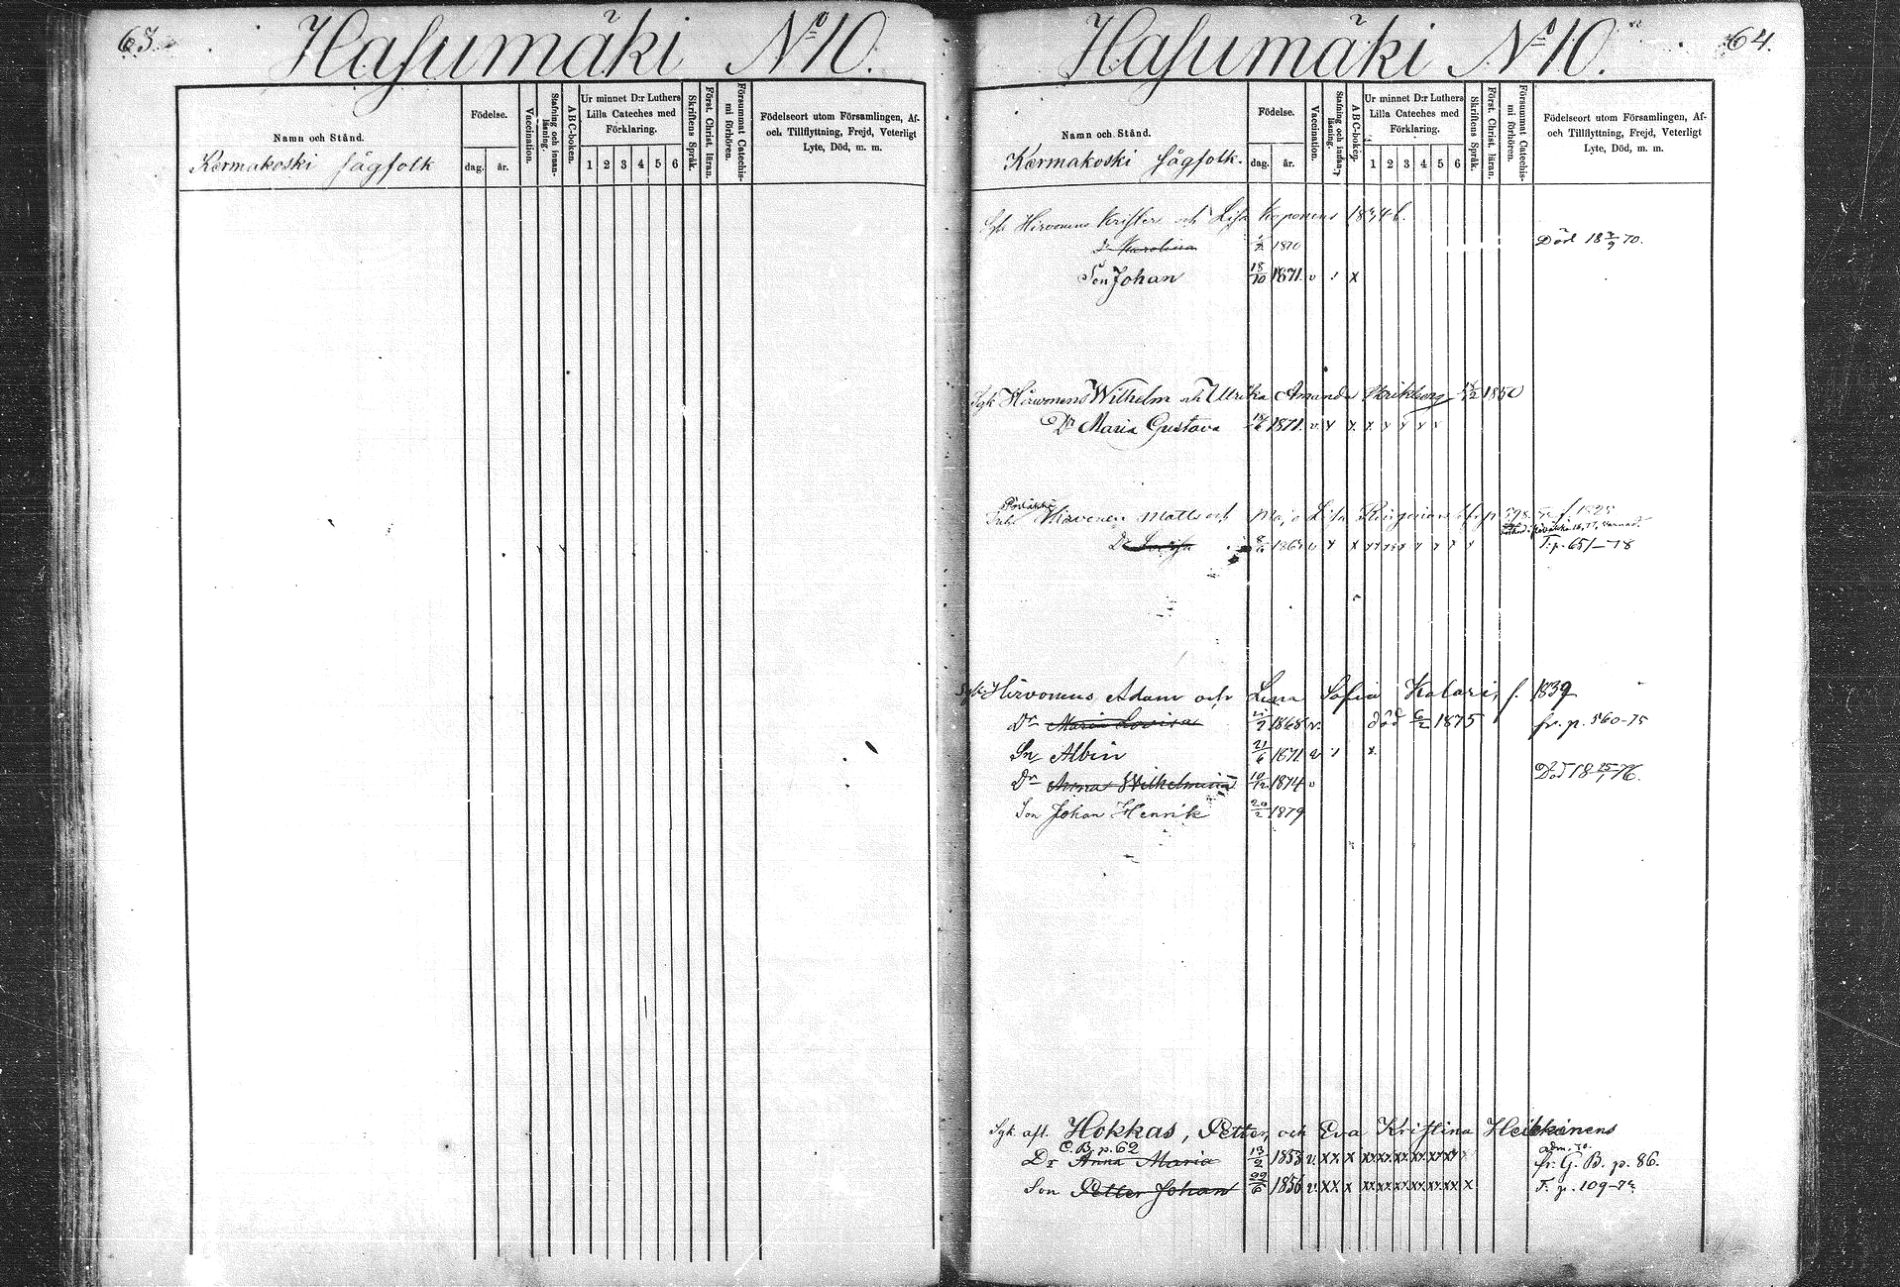 63.
Hasumäki No 10.
Namn och Stånd.
Kermakoski sågfolk
Födelse.
dag. år.
Vaccination.
Stafning och innan-läsning.
ABC-boken.
Ur minnet D:r Luthers Lilla Cateches med Förklaring.
1 2 3 4 5 6
Skriftens Språk.
Först. Christ. läran.
Försummat Catechis-mi förhören.
Födelseort utom Församlingen, Af- och Tillflyttning, Frejd, Veterligt Lyte, Död, m. m.
64.
Hasumäki No 10.
Namn och Stånd.
Kermakoski sågfolk.
Födelse.
dag. år.
Vaccination.
Stafning och innan-läsning.
ABC-boken.
Ur minnet D:r Luthers Lilla Cateches med Förklaring.
1 2 3 4 5 6
Skriftens Språk.
Först. Christ. läran.
Försummat Catechis-mi förhören.
Födelseort utom Församlingen, Af- och Tillflyttning, Frejd, Veterligt Lyte, Död, m. m.
Hirvonens Krister och Lisa Koponens
Dr Karolina 1870 Död 18 3/9 70.
Son Johan 18/10 1871. v x
Sgk Hirvonens Wilhelm och Ulrika Amanda 1850
Dr Maria Gustava 1871. v. x x x x x x
Hirvonen Matts och Maja Lisa
Dr Lovisa v x x x x x x x x x T. p. 651–78
Sgk Hirvonens Adam och Lena Sofia Kolari, f. 1839
Dr Maria Lovisa 1868 v. död 6/2 1875 fr. p. 560-75
Sn Albin 21/6 1871 v x
Dr Anna Wilhelmina 10/12 1874 v Död 18 25/1 76.
Son Johan Henrik 20/2 1879
Sgk. aft. Hokkas, Petter, och Eva Kristina Heikkinens
C. B. p. 62 adm. 70.
Dr Anna Maria 13/2 1853 v. xx x xx xx xx xx xx xx fr. G. B. p. 86.
Son Petter Johan 22/6 1856 v. xx x xx xx xx xx xx xx x T. p. 109–72